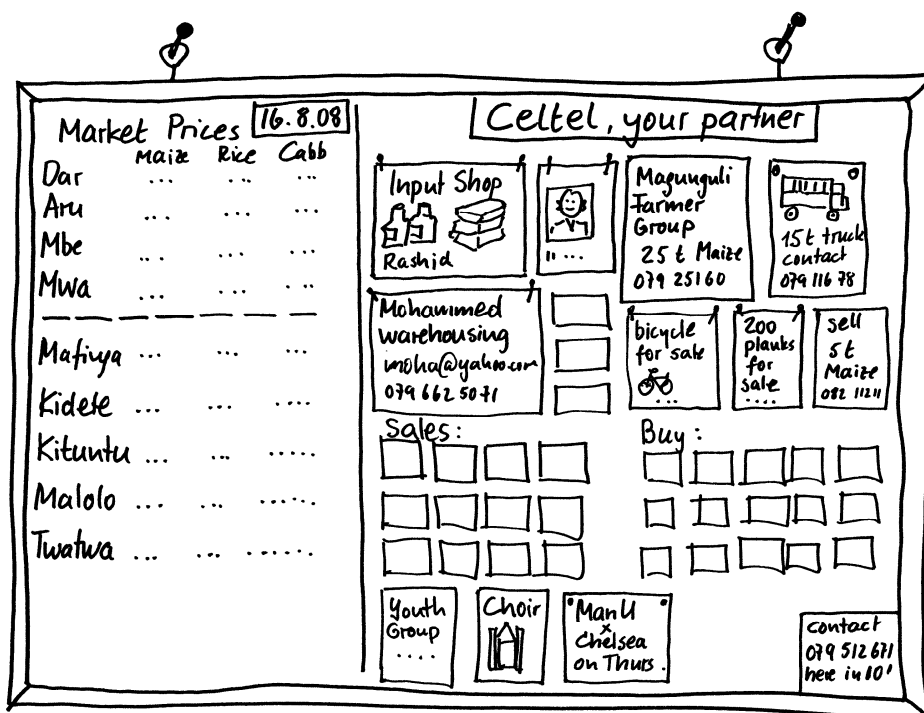 Market Prices 16.8.08
Maize Rice Cabb
Dar ... ... ...
Aru ... ... ...
Mbe ... ... ...
Mwa ... ... ...
Mafinya ... ... ...
Kidete ... ... ....
Kituntu ... ... .....
Malolo ... ... ......
Twatwa ... ... .......
Celtel, your partner
Input Shop
Rashid
" ...
Magunguli
Farmer
Group
25 t Maize
079 25160
15t truck
contact
079 116 78
Mohammed
warehousing
moha@yahoo.com
079 662 5071
bicycle
for sale
....
200
planks
for
sale
....
sell
5 t
Maize
082 11211
Sales:
Buy:
Youth
Group
....
Choir
ManU
x
Chelsea
on Thurs.
contact
079 512 671
here in 10'